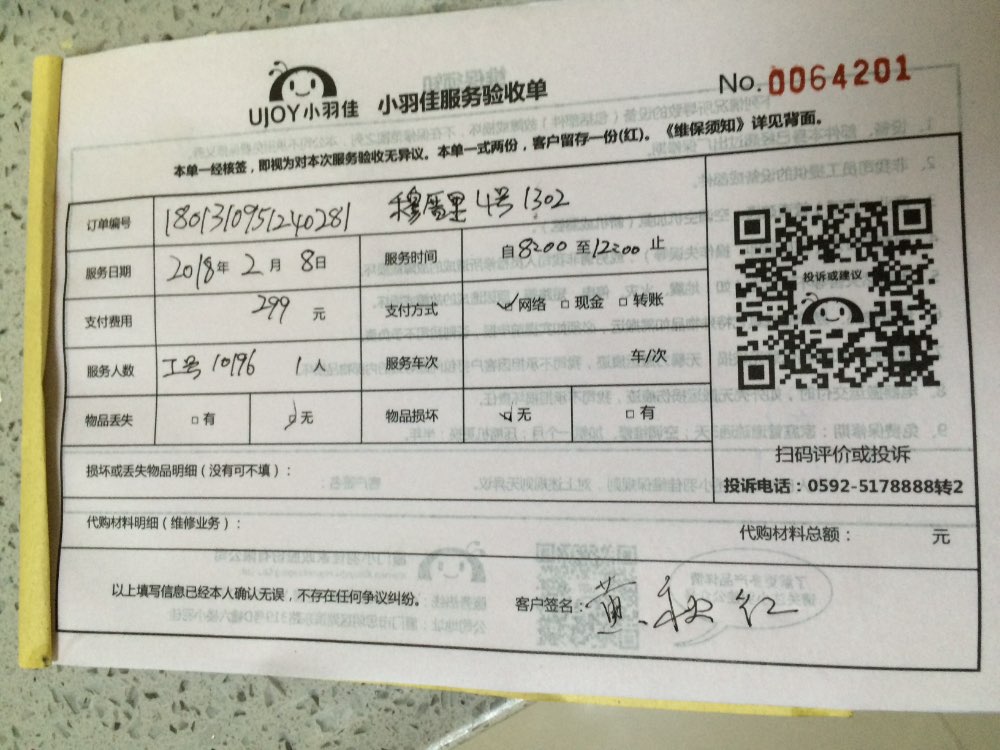 UJOY小羽佳 小羽佳服务验收单 No.0064201
本单一经核签，即视为对本次服务验收无异议。本单一式两份，客户留存一份(红)。《维保须知》详见背面。
订单编号 1801310951240281 穆厝里4号1302
服务日期 2018年2月8日 服务时间 自8:00至12:00止
支付费用 299元 支付方式 ☑网络 □现金 □转账
服务人数 工号10196 1人 服务车次 车/次
物品丢失 □有 ☑无 物品损坏 ☑无 □有
投诉或建议
扫码评价或投诉
投诉电话：0592-5178888转2
损坏或丢失物品明细（没有可不填）：
代购材料明细（维修业务）： 代购材料总额： 元
以上填写信息已经本人确认无误，不存在任何争议纠纷。 客户签名：黄秋红